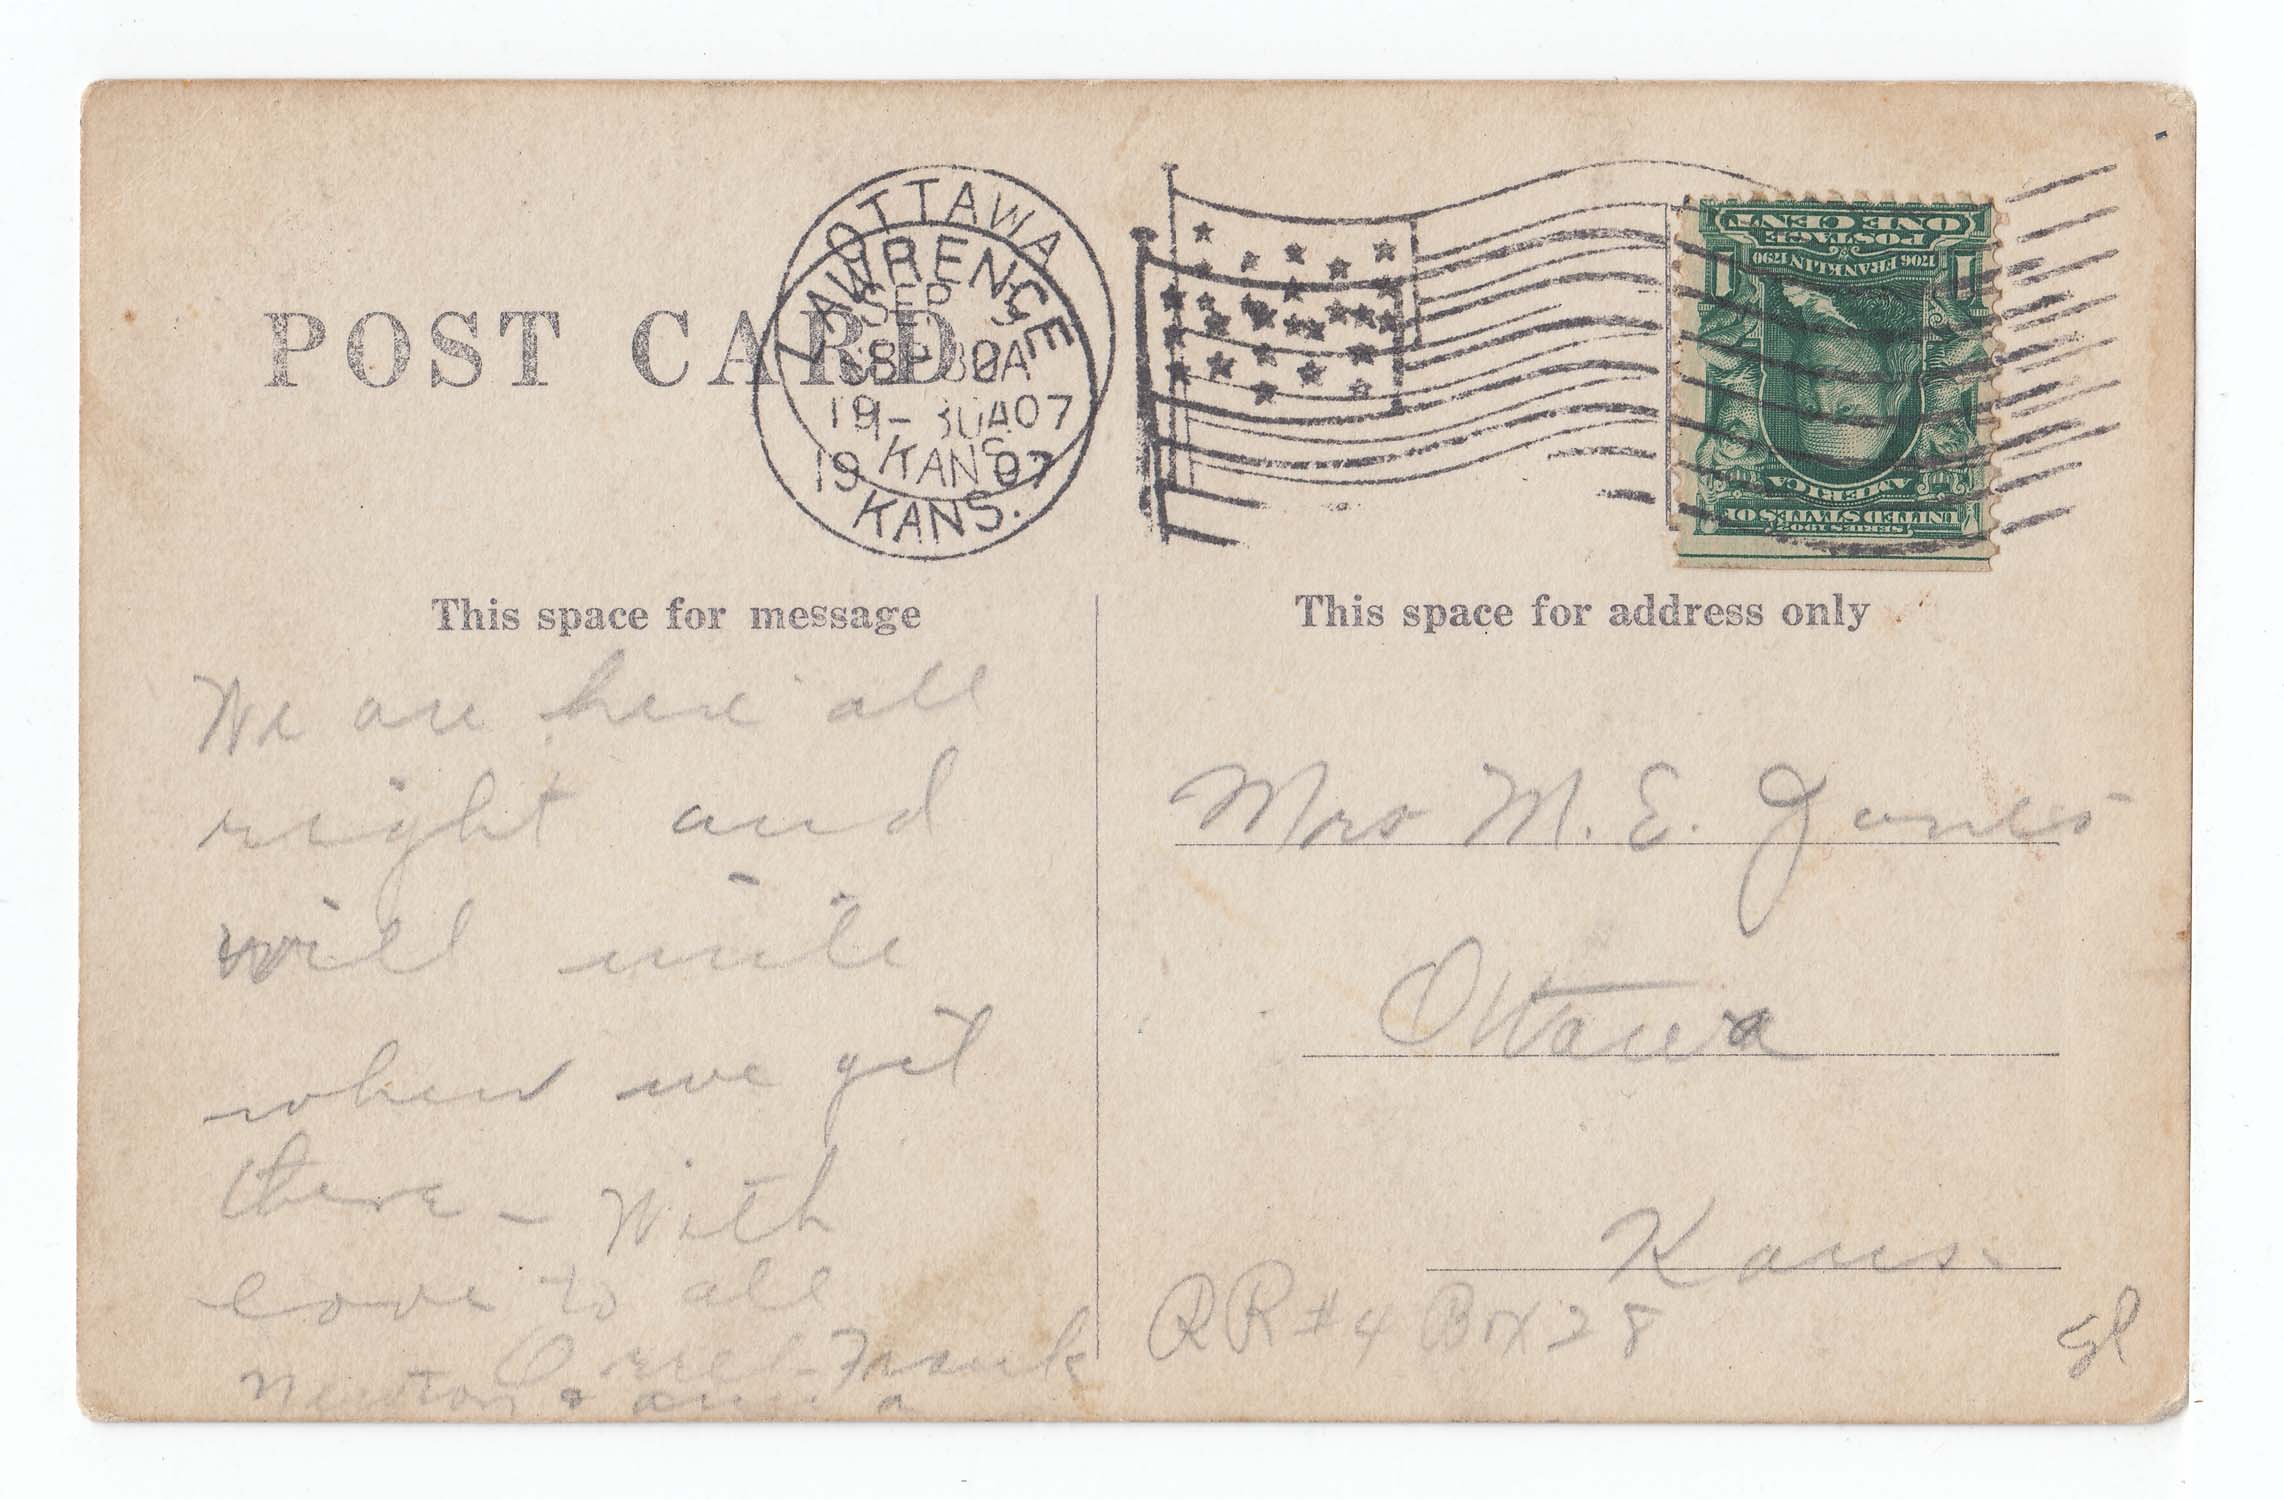 POST CARD
OTTAWA
SEP
30A
1907
KANS
LAWRENCE
SEP
- 30A
1907
KANS.
ONE CENT
POSTAGE
1706 FRANKLIN 1790
1 1
AMERICA
UNITED STATES OF
SERIES 1902
This space for message
We are here all
right and
will write
when we get
there – With
love to all
Frank
Newton & 
This space for address only
Mrs M. E. Jones
Ottawa
Kans.
RR #4 Box 28